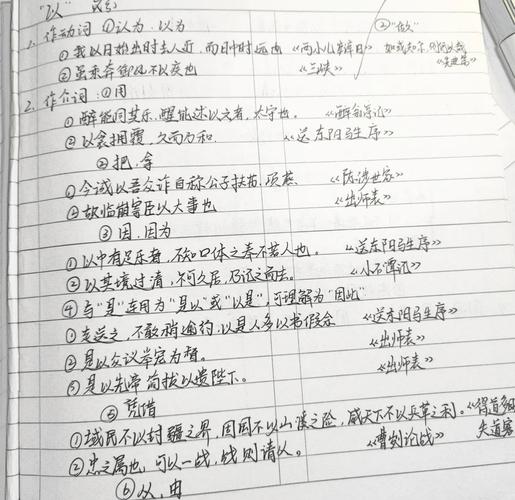 "以"
1. 作动词 ①认为.以为 ②"做"
① 我以日始出时去人近,而日中时远也 《两小儿辩日》
② 虽乘奔御风不以疾也 《三峡》
2. 作介词:①用
① 醉能同其乐,醒能述以文者,太守也。 《醉翁亭记》
② 以衾拥覆,久而乃和. 《送东阳马生序》
②把.拿
① 今诚以吾众诈自称公子扶苏.项燕. 《陈涉世家》
② 故临崩寄臣以大事也 《出师表》
③ 因.因为
① 以中有足乐者,不知口体之奉不若人也. 《送东阳马生序》
② 以其境过清,不可久居,乃记之而去。 《小石潭记》
④ 与"是"连用为"是以"或"以是",可理解为"因此"
① 走送之,不敢稍逾约.以是人多以书假余 《送东阳马生序》
② 是以众议举宠为督。 《出师表》
③ 是以先帝简拔以遗陛下。 《出师表》
⑤ 凭借
① 域民不以封疆之界,固国不以山溪之险,威天下不以兵革之利。《得道多助
失道寡
② 忠之属也,可以一战,战则请从。 《曹刿论战》
⑥ 从,由